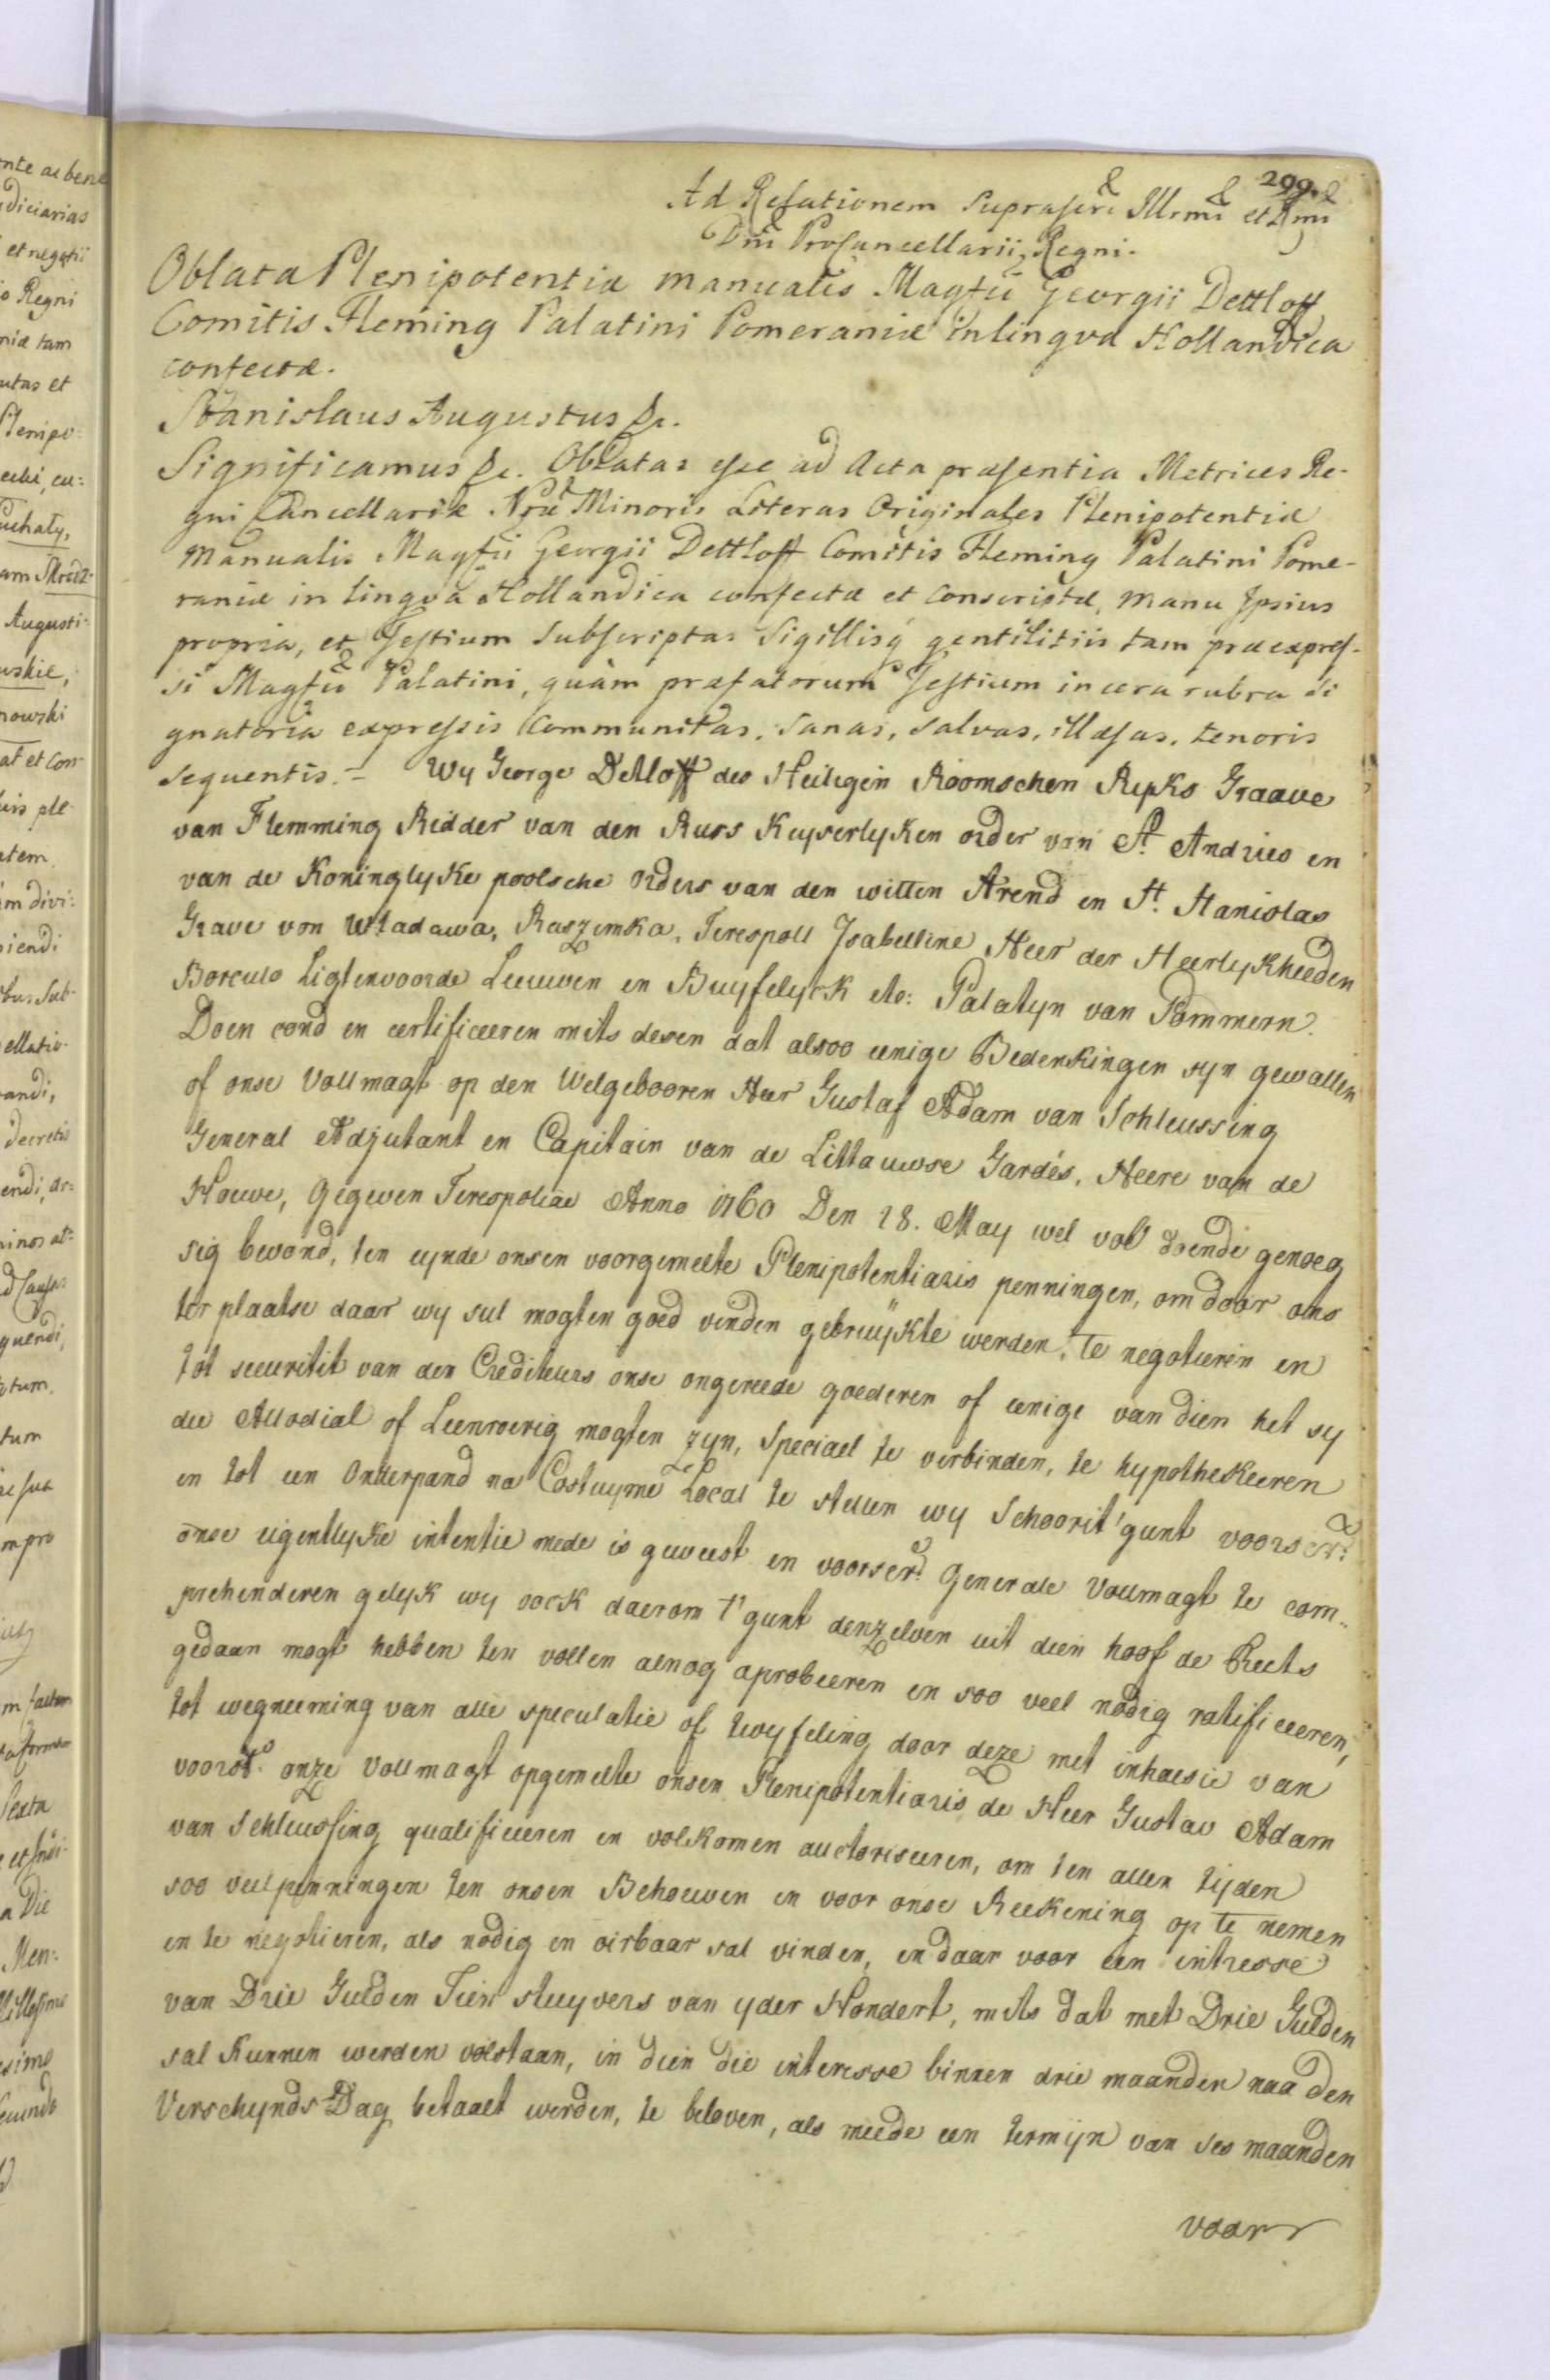 299.
Ad Relationem Suprascri Illrmi et Rmi
Dni Procancellarii Regni.
Oblata Plenipotentiæ manualis Magfci Georgii Dettloff
Comitis Fleming Palatini Pomeraniæ in lingva Hollandica
confectæ.
Stanislaus Augustus &c.
Significamus &c. Oblatas esse ad Acta præsentia Metrices Re-
gni Cancellariæ Nræ Minoris Literas Originales Plenipotentiæ
Manualis Magfci Georgii Dettloff Comitis Fleming Palatini Pome-
raniæ in lingva Hollandica confectæ et conscriptæ, manu Ipsius
propria, et Testium Subscriptas Sigillisq gentilitiis tam præexpres-
si Magfci Palatini, quàm præfatorum Testium in cera rubra si
gnatoria expressis communitas, Sanas, Salvas, illæsas, tenoris
sequentis. - Wy George Detloff des Heiligen Roomschen Ryks Graave
van Flemming Ridder van den Russ Keyserlyken order von St. Andries en
van de Koninglyke poolsche orders van den witten Arend en St. Stanislas
Grave von Wladawa, Raszimka, Terespoll Isabelline Heer der Heerlykheeden
Borculo Ligtenvoorde Leeuwen en Buyfelyck etc: Palatyn van Pommern.
Doen cond en certificeeren mits desen dat alsoo eenige Bedenkingen syn gewallen
of onse Vollmagt op den Welgebooren Heer Gustaf Adam van Schleussing
General Adjutant en Capitain van de Littauwse Gardes, Heere van de
Houve, Gegeven Terespoliae Anno 1760 Den 28. May wel vol doende genoeg
sig bevond, ten eynde onsen voorgemelte Plenipotentiaris penningen, om door ons
ter plaatse daar wy sul mogten goed vinden gebruykte werden, te negotieren en
tot securitit van den Crediteurs onse ongereede goederen of eenige van dien het sy
die Allodial of Leenroerig mogten zyn, Speciael te verbinden, te hypothekeeren
en tot een Onderpand na Costuyme Local te stellen wy Schoorit'gunt voorscr:
onse eigentlyke intentie mede is geweest en voorscr: Generale Vollmagt te com-
prehenderen gelyk wy oock daerom t'gunt denzelven uit dien hoof de Reets
gedaan mogt hebben ten vollen alnog aprobeeren en soo veel nodig ratificeeren,
tot wegneeming van alle speculatie of twyfeling door deze met inhaesie van
voorst. onze Vollmagt opgemelte onsen Plenipotentiaris de Heer Gustav Adam
van Schleussing qualificeeren en volkomen auctoriseeren, om ten allen tijden
soo veel penningen ten onsen Behoeuven en voor onse Reekening op te nemen
en te negotieren, als nodig en oirbaar sal vinden, en daar voor een intresse
van Drie Gulden Tien stuyvers van yder Hondert, mits dat met Drie Gulden
sal kunnen werden volstaan, in dien die interesse binnen drie maanden naa den
Verschynds Dag betaalt werden, te beloven, als meede een termijn van ses maanden
voor